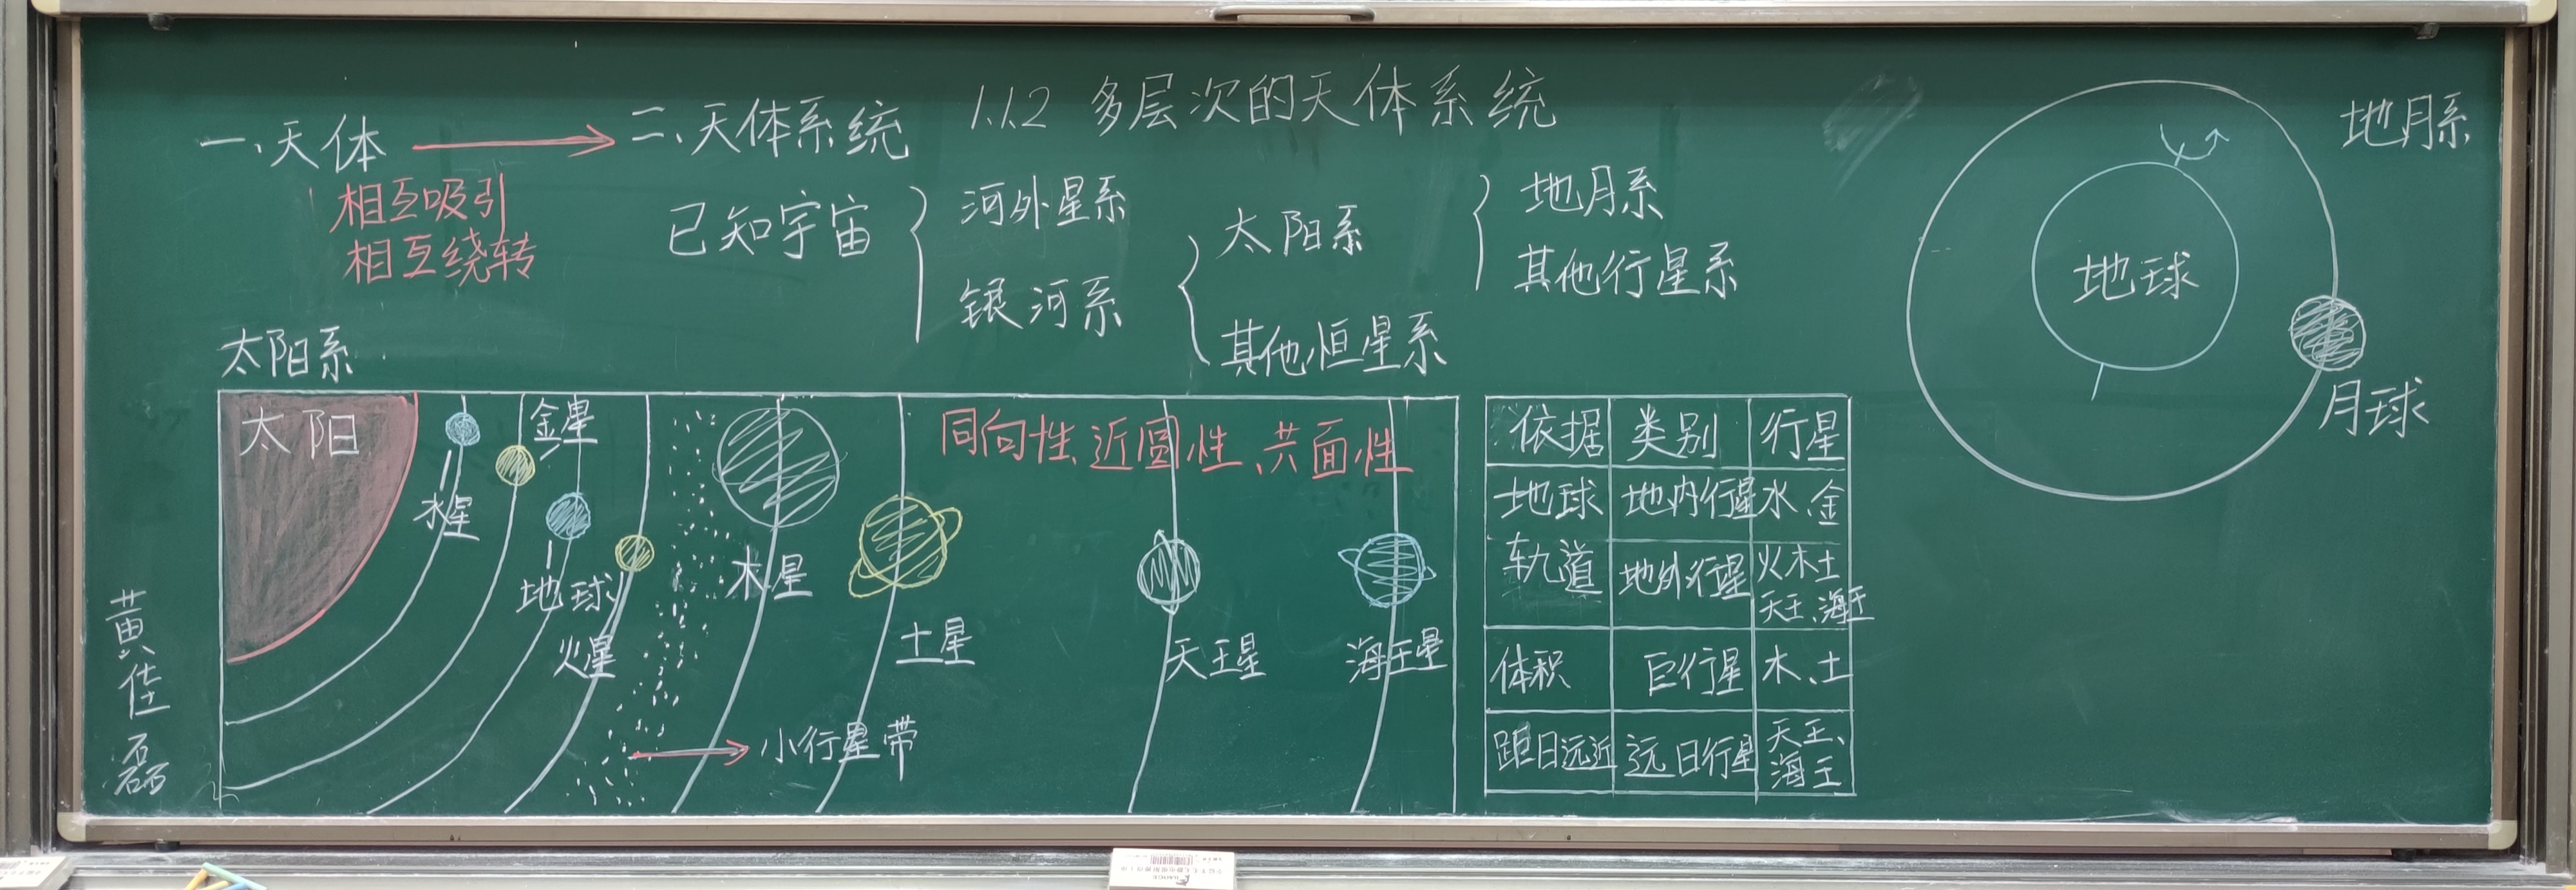 1.1.2 多层次的天体系统
一、天体
相互吸引
相互绕转
二、天体系统
已知宇宙
河外星系
银河系
太阳系
其他恒星系
地月系
其他行星系
太阳系
太阳
水星
金星
地球
火星
木星
土星
天王星
海王星
小行星带
同向性、近圆性、共面性
依据 类别 行星
地球轨道 地内行星 水、金
地外行星 火木土
天王、海王
体积 巨行星 木、土
距日远近 远日行星 天王、
海王
地月系
地球
月球
黄佳磊